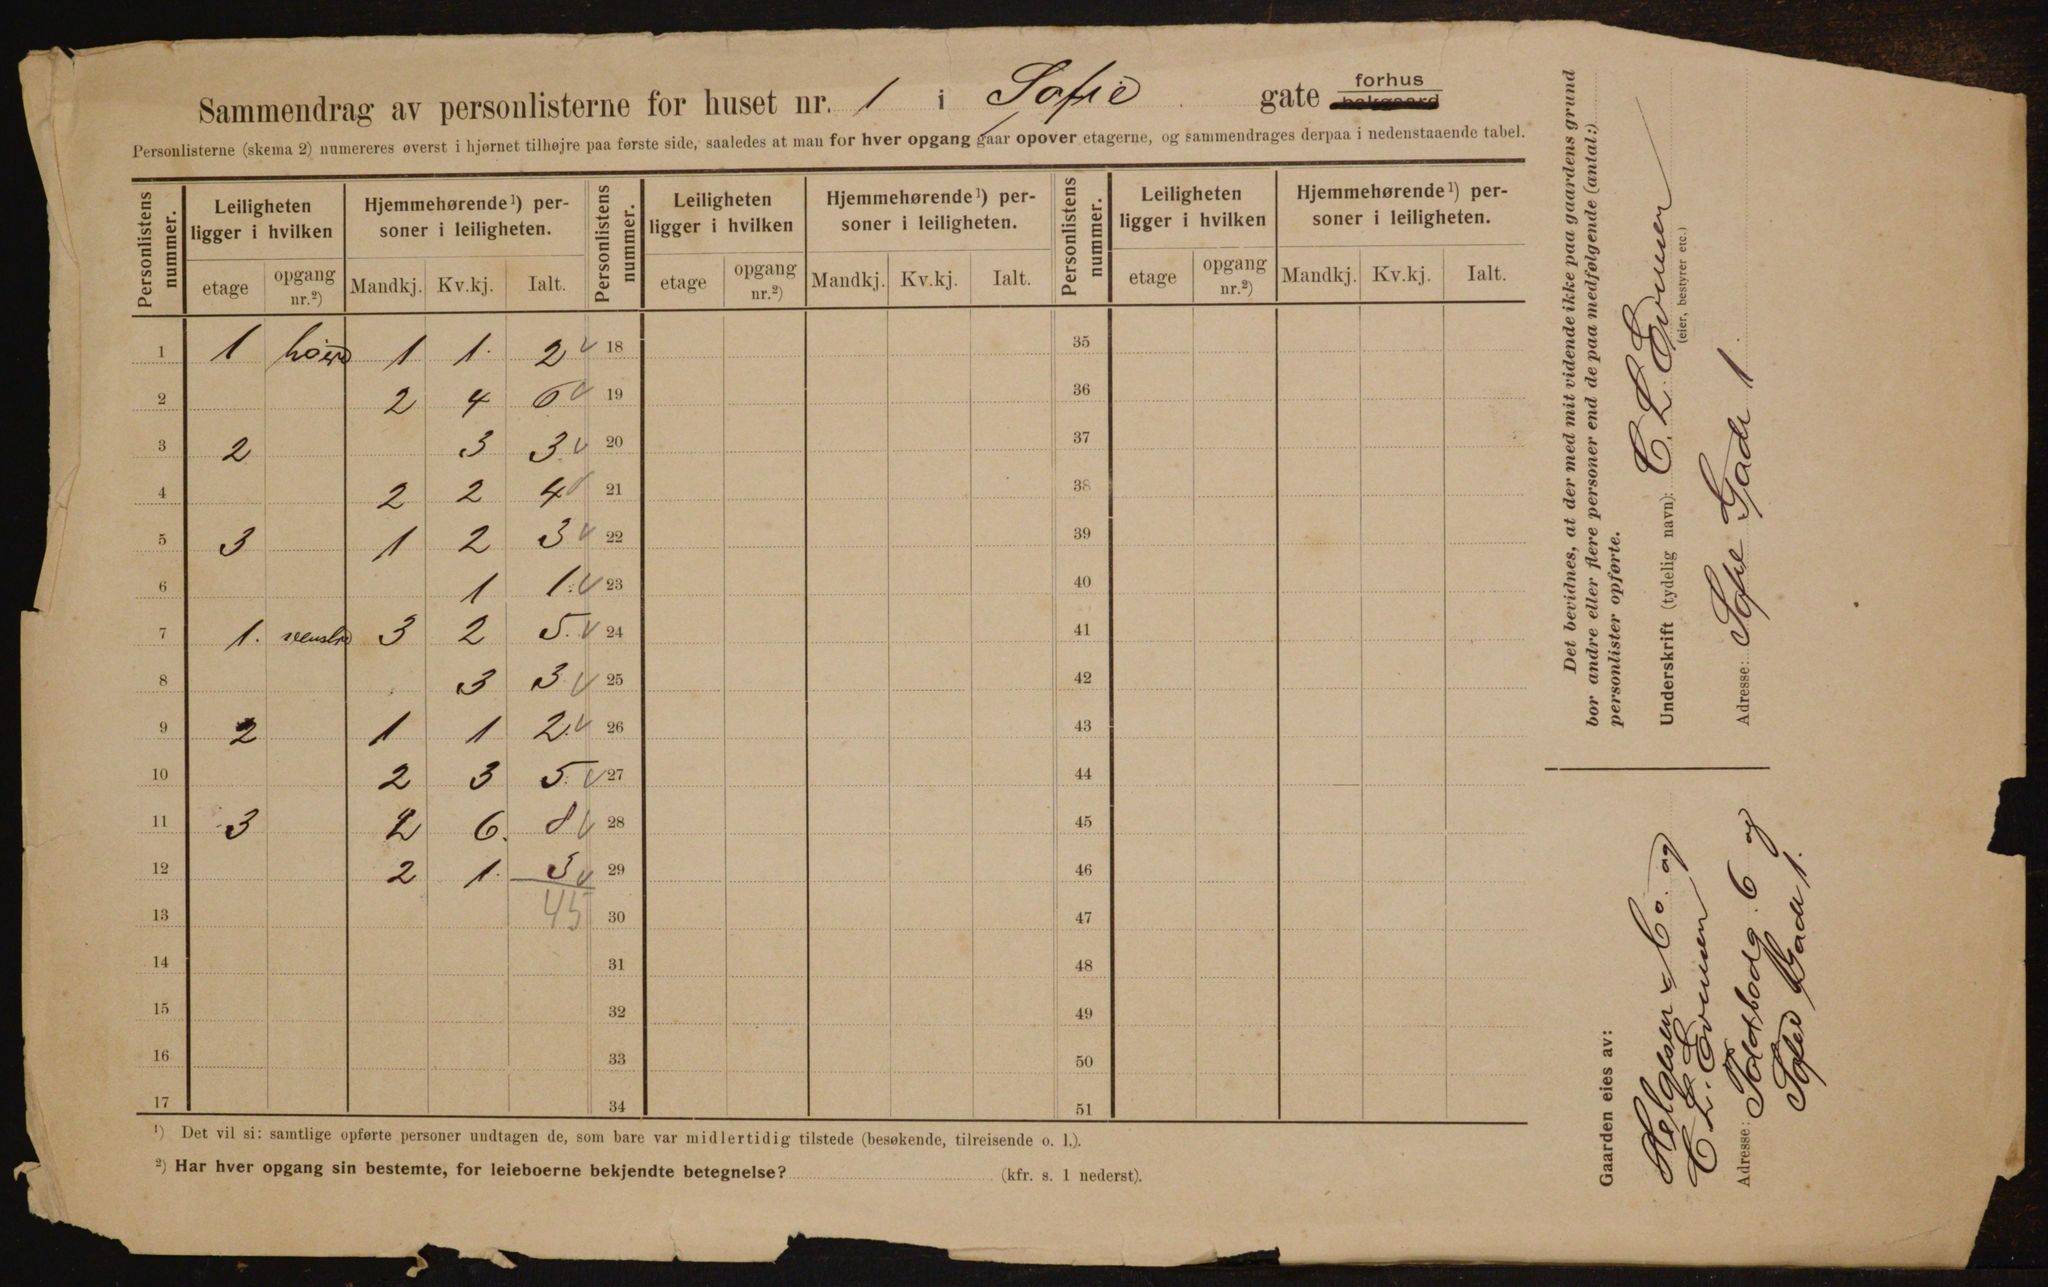 Sammendrag av personlisterne for huset nr. 1 i Sofie gate forhus bakgaard
Personlisterne (skema 2) numereres øverst i hjørnet tilhøjre paa første side, saaledes at man for hver opgang gaar opover etagerne, og sammendrages derpaa i nedenstaaende tabel.
Personlistens nummer. Leiligheten ligger i hvilken Hjemmehørende¹) personer i leiligheten. Personlistens nummer. Leiligheten ligger i hvilken Hjemmehørende¹) personer i leiligheten. Personlistens nummer. Leiligheten ligger i hvilken Hjemmehørende¹) personer i leiligheten.
etage opgang nr.²) Mandkj. Kv.kj. Ialt. etage opgang nr.²) Mandkj. Kv.kj. Ialt. etage opgang nr.²) Mandkj. Kv.kj. Ialt.
1 1 høire 1 1. 2 18 35
2 2 4 6 19 36
3 2 3 3 20 37
4 2 2 4 21 38
5 3 1 2 3 22 39
6 1 1. 23 40
7 1. venstre 3 2 5. 24 41
8 3 3 25 42
9 2 1 1 2. 26 43
10 2 3 5. 27 44
11 3 2 6. 8 28 45
12 2 1. 3 29 46
13 45 30 47
14 31 48
15 32 49
16 33 50
17 34 51
¹) Det vil si: samtlige opførte personer undtagen de, som bare var midlertidig tilstede (besøkende, tilreisende o. l.).
²) Har hver opgang sin bestemte, for leieboerne bekjendte betegnelse? (kfr. s. 1 nederst).
Det bevidnes, at der med mit vidende ikke paa gaardens grund
bor andre eller flere personer end de paa medfølgende (antal:)
personlister opførte.
Underskrift (tydelig navn): C. L. Evensen
(eier, bestyrer etc.)
Adresse: Sofie Gade 1.
Gaarden eies av:
Helgesen & Co. og
C. L. Evensen
Adresse: Toldbodg. 6 og
Sofie Gade 1.